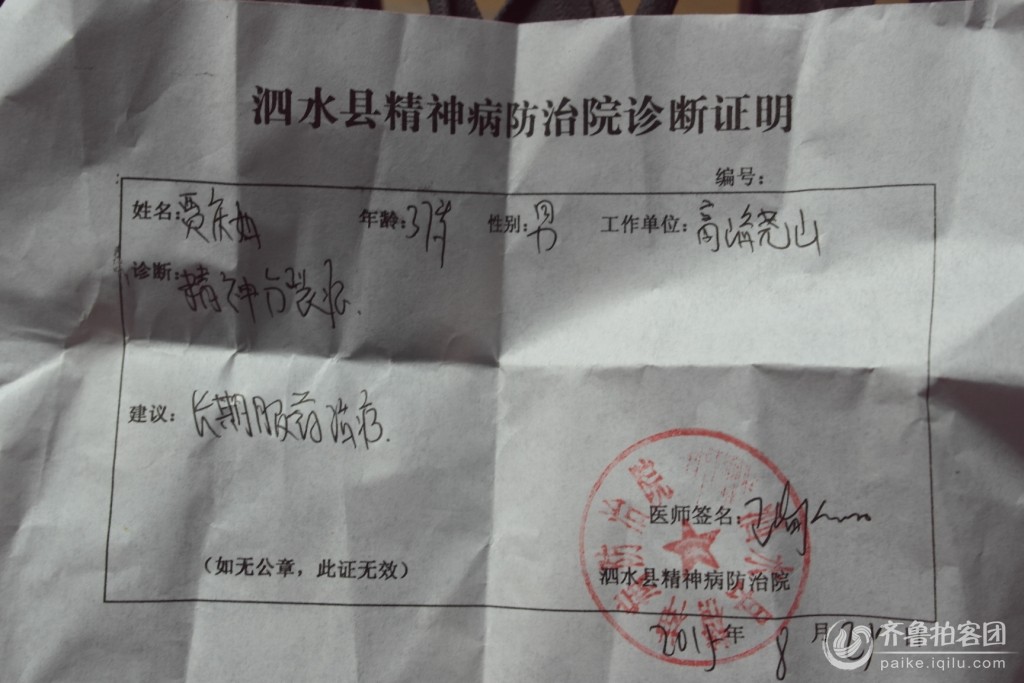 泗水县精神病防治院诊断证明
编号：
姓名：贾庆 年龄：37岁 性别：男 工作单位：高峪尧山
诊断：精神分裂症.
建议：长期服药治疗.
医师签名：
（如无公章，此证无效） 泗水县精神病防治院
2015年8月 日
齐鲁拍客团
paike.iqilu.com